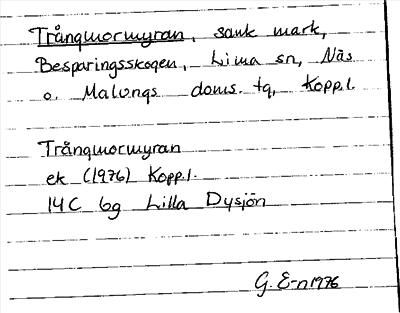 Trångmormyran, sank mark,
Besparingsskogen, Lima sn, Näs
o. Malungs doms. tg, Kopp.l.
Trångmormyran
ek (1976) Kopp.l.
14C 6g Lilla Dysjön
G. E-n 1976